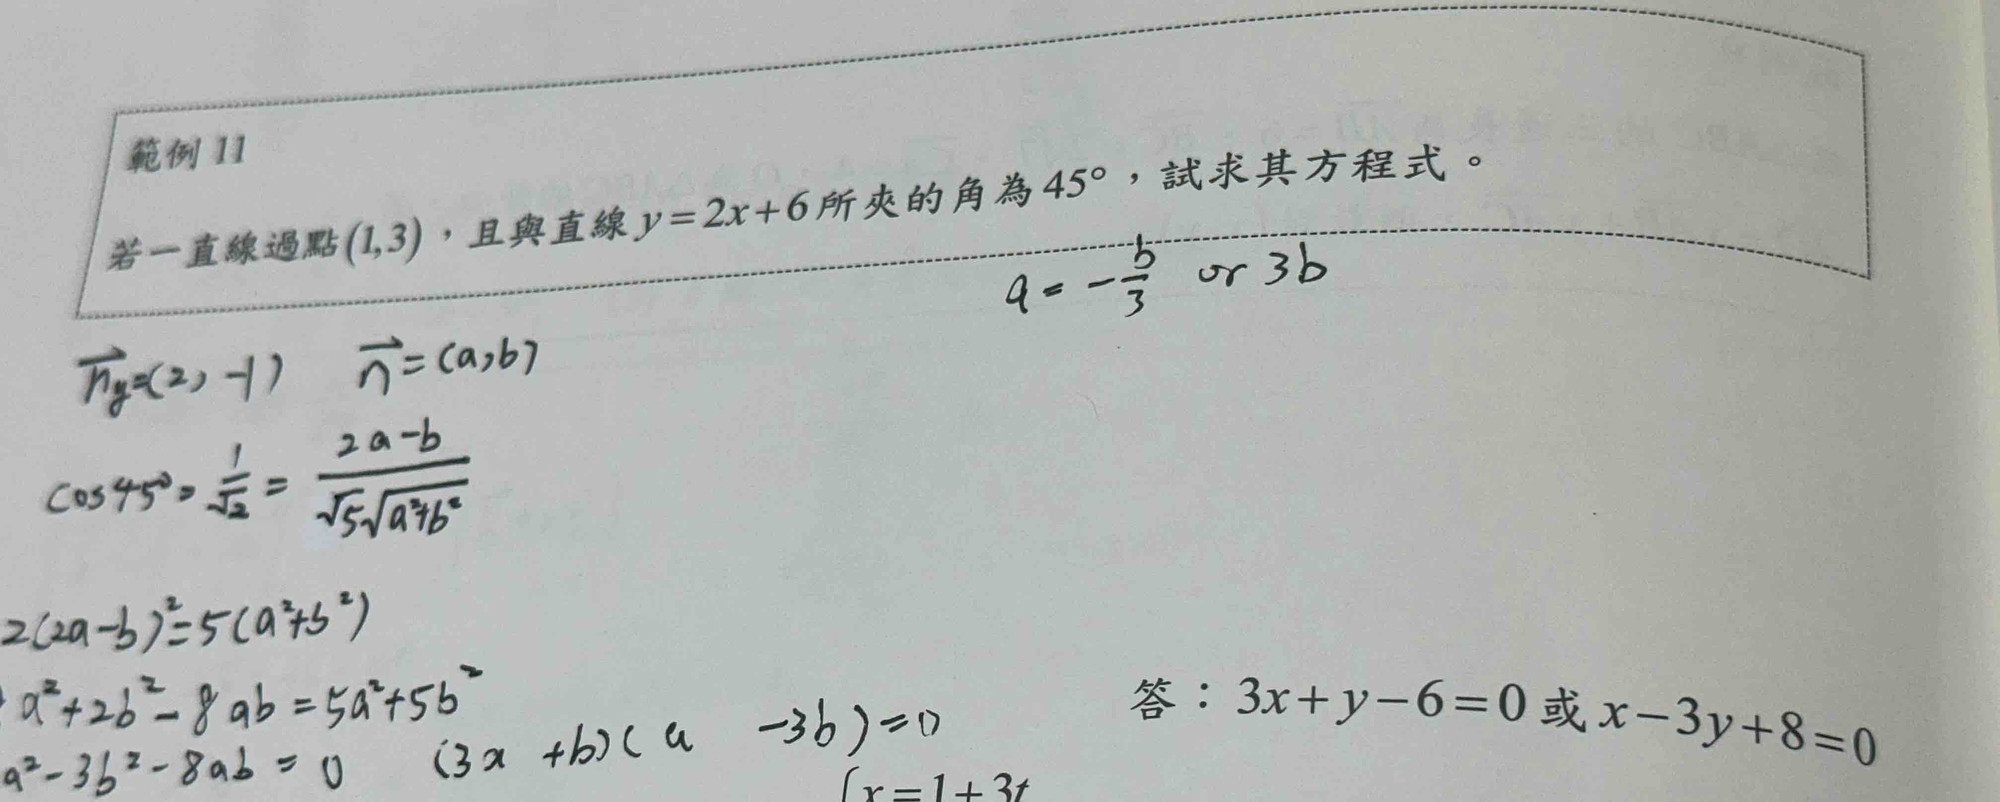 範例 11
若一直線過點(1,3)，且與直線 y=2x+6 所夾的角為 45°，試求其方程式。
a = -b/3 or 3b
n⃗y=(2, -1) n⃗=(a,b)
cos45°= 1/√2 = (2a-b)/(√5√(a²+b²))
2(2a-b)²=5(a²+b²)
a²+2b²-8ab=5a²+5b²
a²-3b²-8ab=0 (3x+b)(a -3b)=0
答：3x+y-6=0 或 x-3y+8=0
x=1+3t